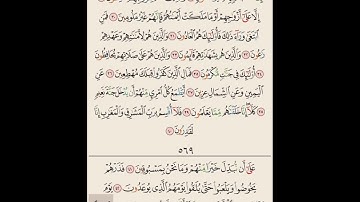 إِلَّا عَلَىٰٓ أَزْوَٰجِهِمْ أَوْ مَا مَلَكَتْ أَيْمَٰنُهُمْ فَإِنَّهُمْ غَيْرُ مَلُومِينَ ٣٠ فَمَنِ
ٱبْتَغَىٰ وَرَآءَ ذَٰلِكَ فَأُو۟لَٰٓئِكَ هُمُ ٱلْعَادُونَ ٣١ وَٱلَّذِينَ هُمْ لِأَمَٰنَٰتِهِمْ وَعَهْدِهِمْ
رَٰعُونَ ٣٢ وَٱلَّذِينَ هُم بِشَهَٰدَٰتِهِمْ قَآئِمُونَ ٣٣ وَٱلَّذِينَ هُمْ عَلَىٰ صَلَاتِهِمْ يُحَافِظُونَ
٣٤ أُو۟لَٰٓئِكَ فِى جَنَّٰتٍ مُّكْرَمُونَ ٣٥ فَمَالِ ٱلَّذِينَ كَفَرُوا۟ قِبَلَكَ مُهْطِعِينَ ٣٦ عَنِ
ٱلْيَمِينِ وَعَنِ ٱلشِّمَالِ عِزِينَ ٣٧ أَيَطْمَعُ كُلُّ ٱمْرِئٍ مِّنْهُمْ أَن يُدْخَلَ جَنَّةَ نَعِيمٍ
٣٨ كَلَّآ إِنَّا خَلَقْنَٰهُم مِّمَّا يَعْلَمُونَ ٣٩ فَلَآ أُقْسِمُ بِرَبِّ ٱلْمَشَٰرِقِ وَٱلْمَغَٰرِبِ إِنَّا
لَقَٰدِرُونَ ٤٠
٥٦٩
عَلَىٰٓ أَن نُّبَدِّلَ خَيْرًا مِّنْهُمْ وَمَا نَحْنُ بِمَسْبُوقِينَ ٤١ فَذَرْهُمْ
يَخُوضُوا۟ وَيَلْعَبُوا۟ حَتَّىٰ يُلَٰقُوا۟ يَوْمَهُمُ ٱلَّذِى يُوعَدُونَ ٤٢ يَوْمَ